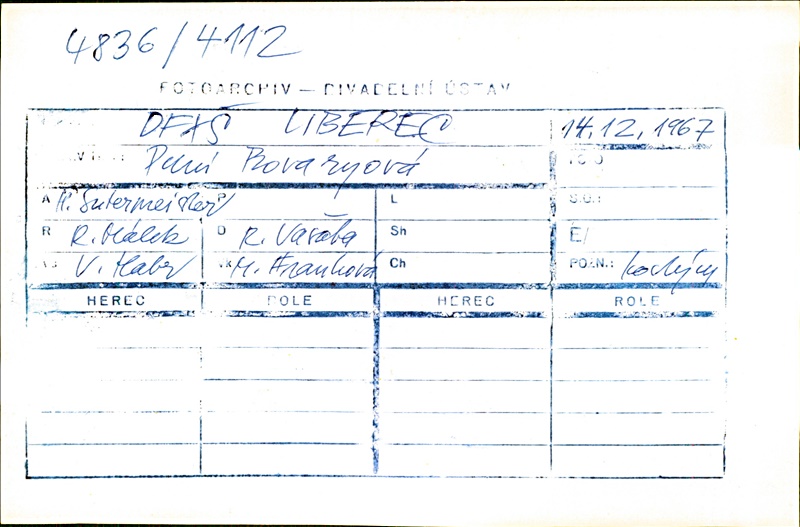 4836/4112
FOTOARCHIV — DIVADELNÍ ÚSTAV
DFXŠ LIBEREC 14.12.1967
Paní Bovaryová
A H. Sutermeister P L S.O.:
R R. Málek D R. Vašata Sh E/
V. Haber M. Franková Ch POZN.:
HEREC ROLE HEREC ROLE